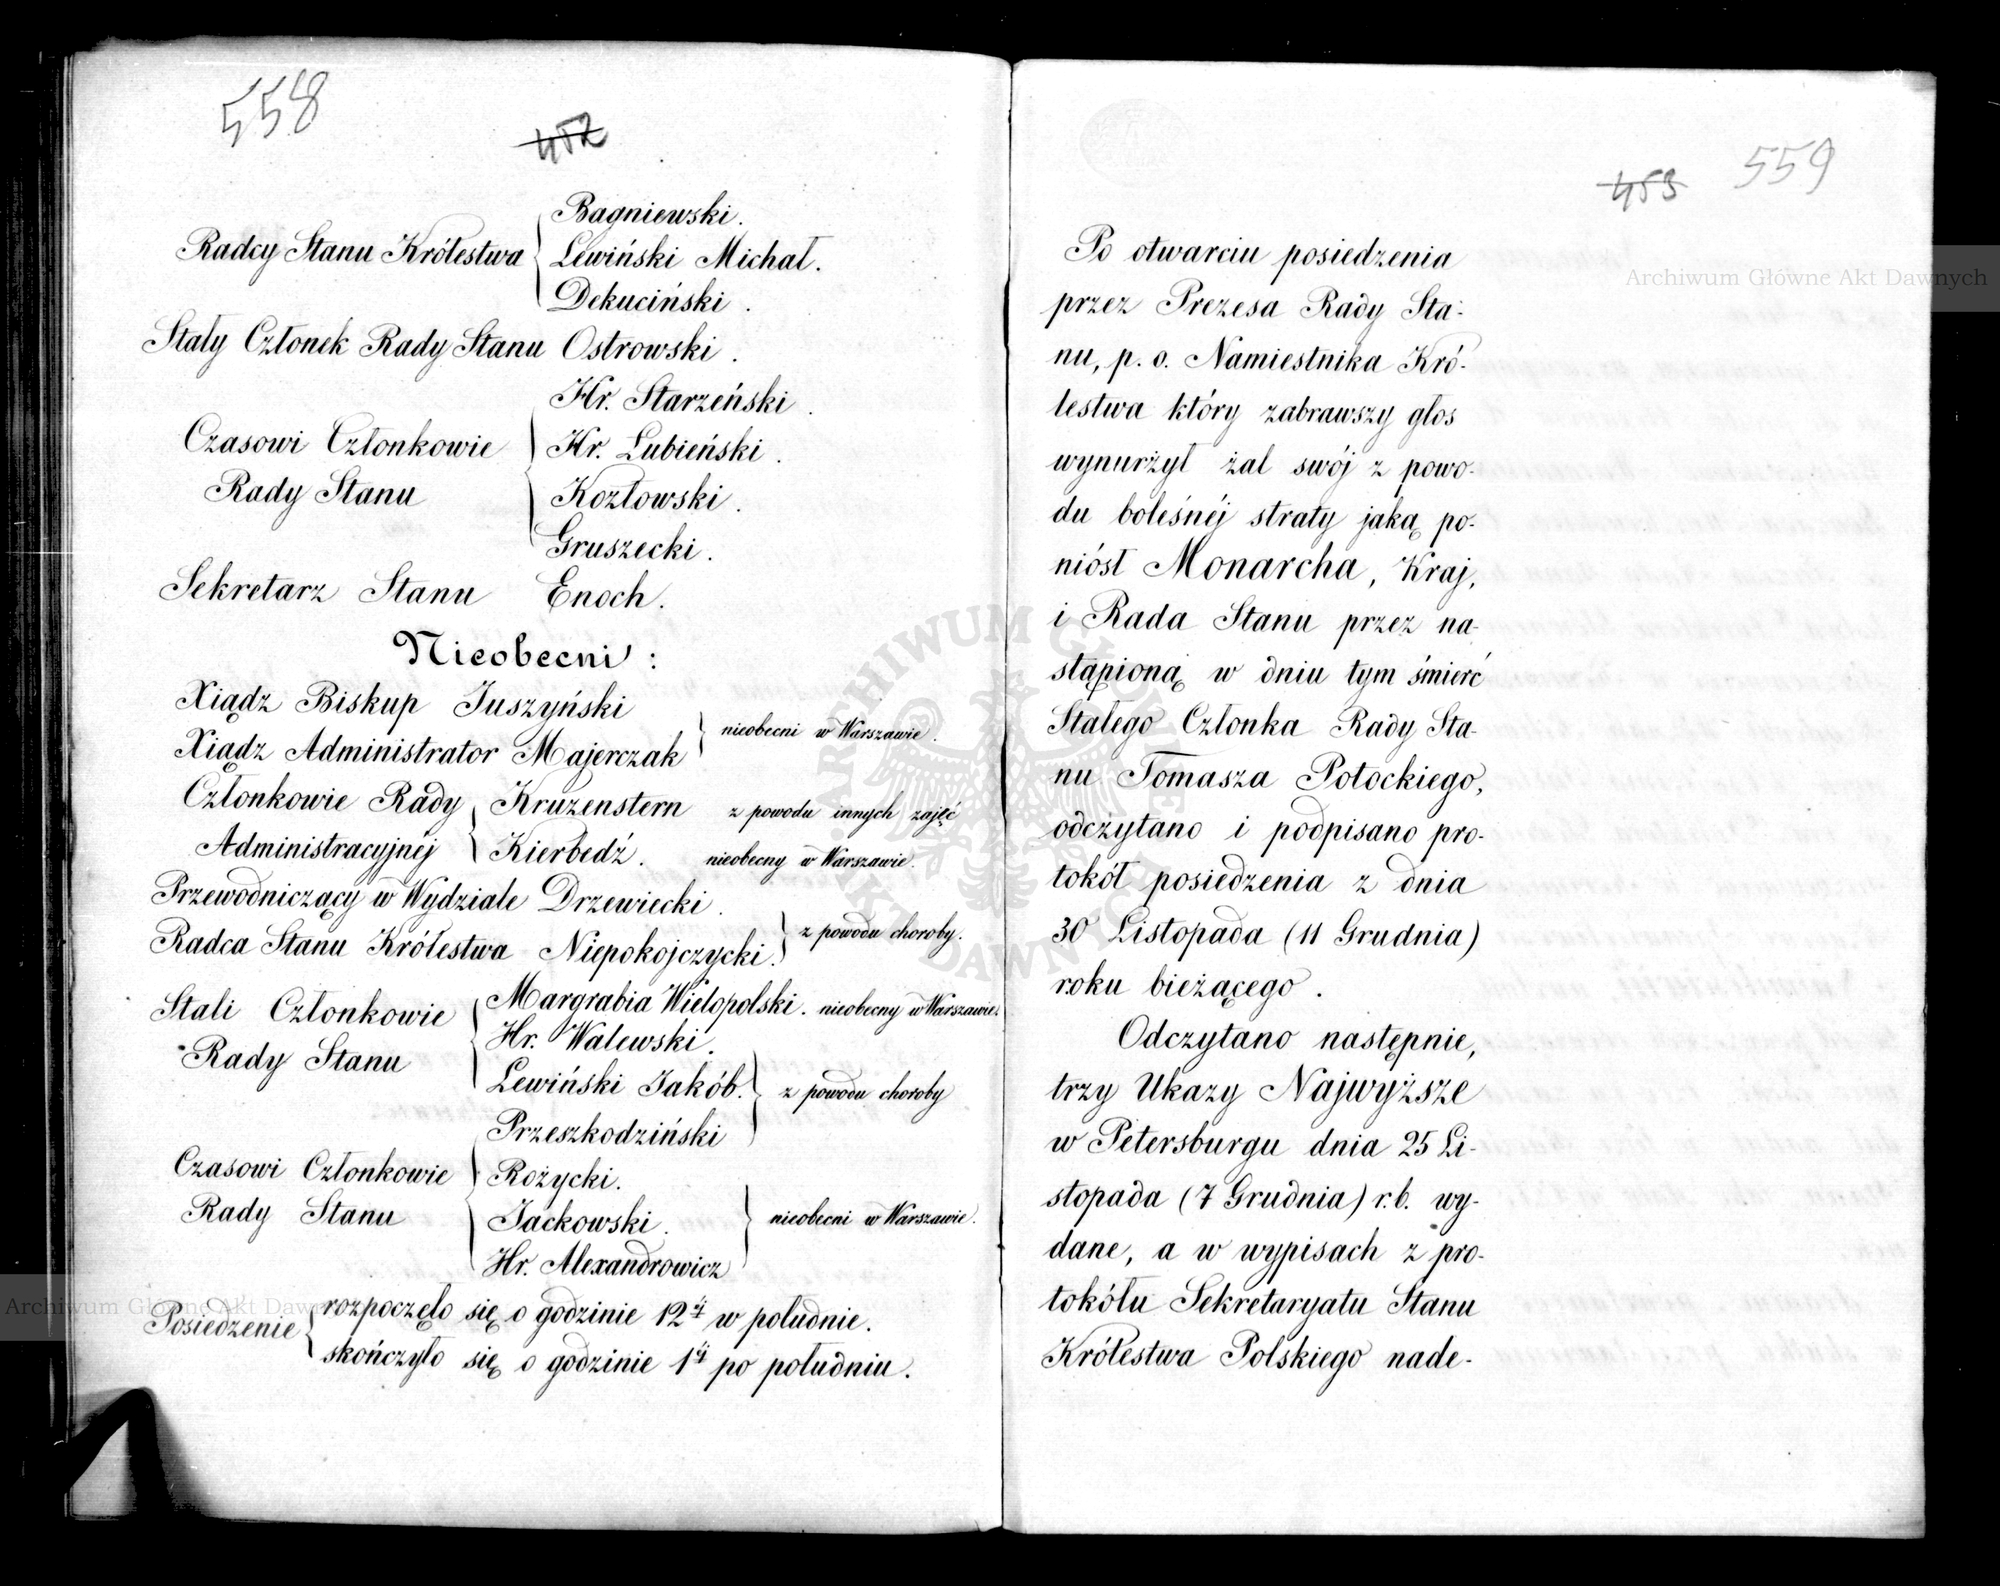 558
452
Bagniewski.
Radcy Stanu Królestwa Lewiński Michał.
Dekuciński.
Stały Członek Rady Stanu Ostrowski.
Hr. Starzeński.
Czasowi Członkowie Hr. Łubieński.
Rady Stanu Kozłowski.
Gruszecki.
Sekretarz Stanu Enoch.
Nieobecni:
Xiądz Biskup Juszyński
Xiądz Administrator Majerczak nieobecni w Warszawie.
Członkowie Rady Kruzenstern z powodu innych zajęć
Administracyjnéj Kierbedź. nieobecny w Warszawie.
Przewodniczący w Wydziale Drzewiecki.
Radca Stanu Królestwa Niepokojczycki. z powodu choroby.
Stali Członkowie Margrabia Wielopolski. nieobecny w Warszawie.
Rady Stanu Hr. Walewski.
Lewiński Jakób. z powodu choroby
Przeszkodziński
Czasowi Członkowie Rożycki.
Rady Stanu Jackowski. nieobecni w Warszawie.
Hr. Alexandrowicz
Posiedzenie rozpoczęło się o godzinie 12éj w południe.
skończyło się o godzinie 1éj po południu.
453
559
Po otwarciu posiedzenia
przez Prezesa Rady Sta-
nu, p. o. Namiestnika Kró-
lestwa który zabrawszy głos
wynurzył żal swój z powo-
du boleśnéj straty jaką po-
niósł Monarcha, Kraj,
i Rada Stanu przez na-
stąpioną w dniu tym śmierć
Stałego Członka Rady Sta-
nu Tomasza Potockiego,
odczytano i podpisano pro-
tokół posiedzenia z dnia
30 Listopada (11 Grudnia)
roku bieżącego.
Odczytano następnie,
trzy Ukazy Najwyższe
w Petersburgu dnia 25 Li-
stopada (7 Grudnia) r.b. wy-
dane, a w wypisach z pro-
tokółu Sekretaryatu Stanu
Królestwa Polskiego nade-
Archiwum Główne Akt Dawnych
Archiwum Główne Akt Dawnych
ARCHIWUM GŁÓWNE AKT DAWNYCH